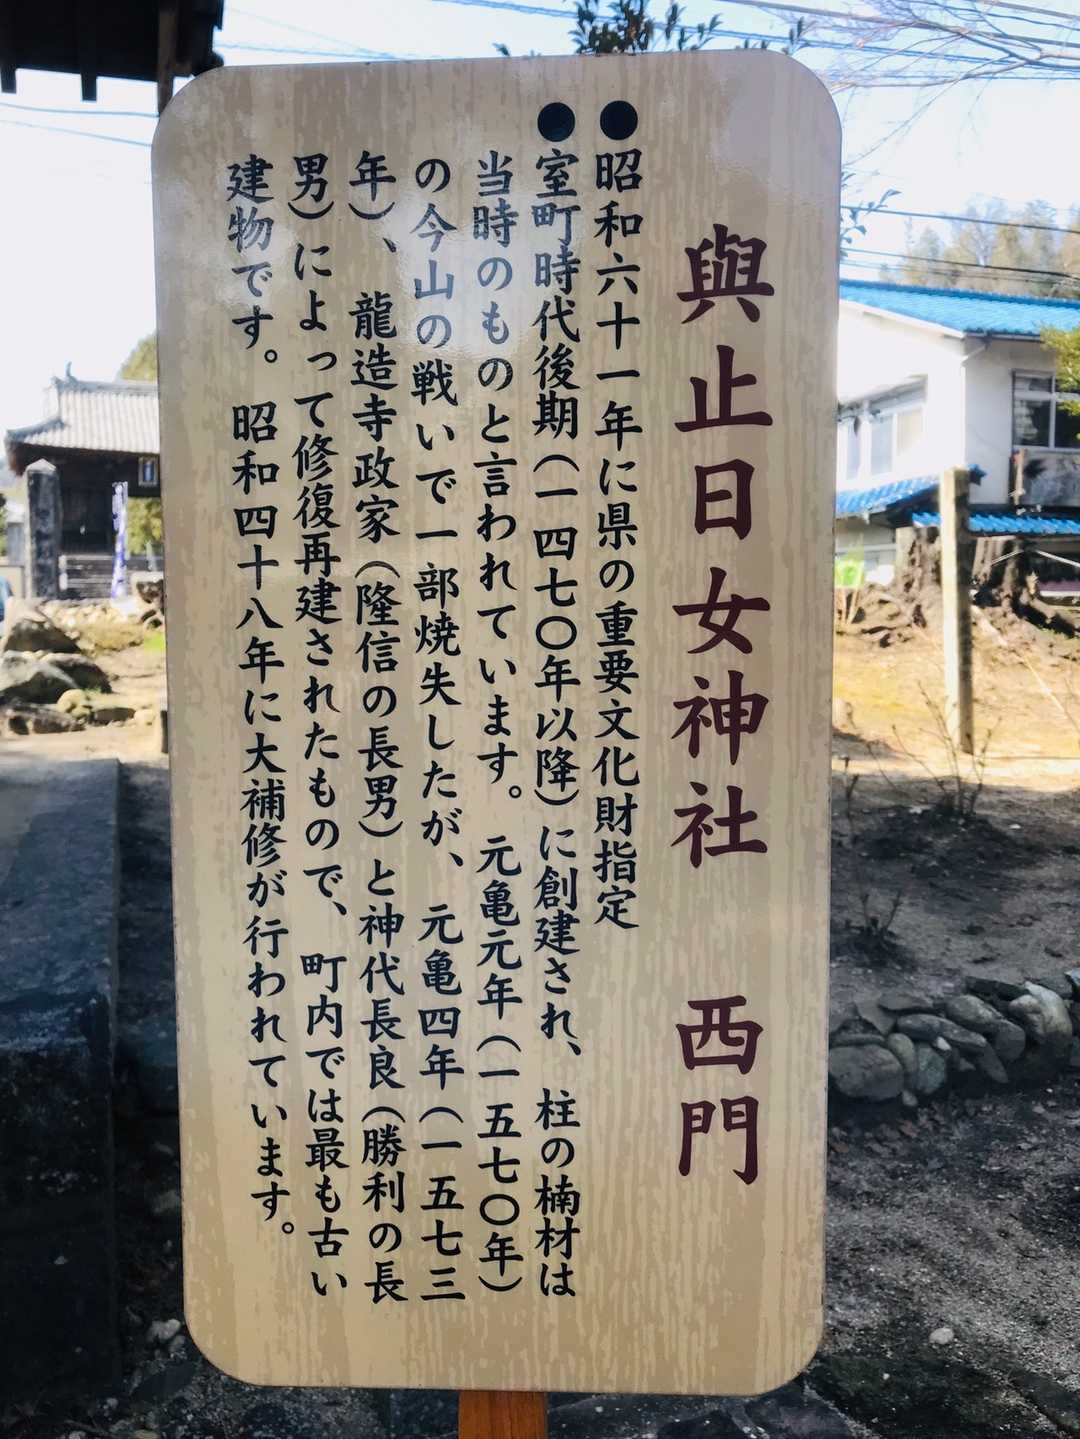 與止日女神社 西門
●昭和六十一年に県の重要文化財指定
●室町時代後期（一四七〇年以降）に創建され、柱の楠材は
当時のものと言われています。元亀元年（一五七〇年）
の今山の戦いで一部焼失したが、元亀四年（一五七三
年）、龍造寺政家（隆信の長男）と神代長良（勝利の長
男）によって修復再建されたもので、町内では最も古い
建物です。昭和四十八年に大補修が行われています。